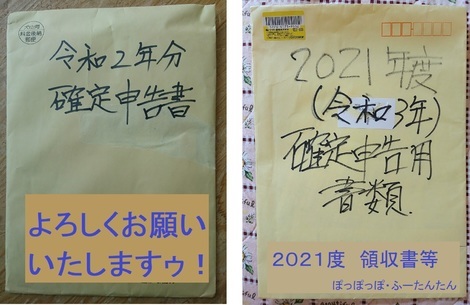 令和2年分
確定申告書
よろしくお願い
いたしますゥ！
2021年度
(令和3年)
確定申告用
書類.
2021度 領収書等
ぽっぽっぽ・ふーたんたん